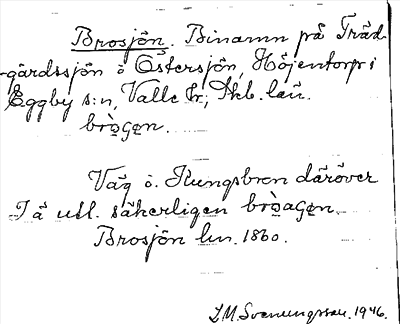 Brosjön. Binamn på Träd-
-gårdssjön o Östersjön, Höjentorp i
Eggby s:n, Valle hd, Skb. län.
bròagen.
Väg o. Kungsbron däröver
I ä utt. säkerligen bròagen.
Brosjön lm. 1860.
L.M. Svenungsson. 1946.